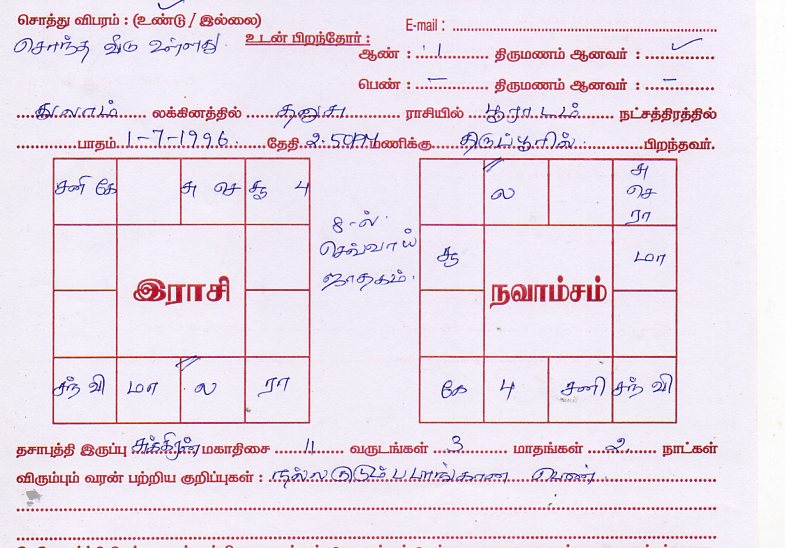 சொத்து விபரம் : (உண்டு / இல்லை)
E-mail :
சொந்த வீடு உள்ளது.
உடன் பிறந்தோர் :
ஆண் : 1 திருமணம் ஆனவர் : ✓
பெண் : – திருமணம் ஆனவர் : –
துலாம் லக்கினத்தில் தனுசு ராசியில் பூராடம் நட்சத்திரத்தில்
பாதம் 1-7-1996 தேதி 2.50PM மணிக்கு திருப்பூரில் பிறந்தவர்.
சனி கே
சு செ
சூ 4
இராசி
சந் வி
மா
ல
ரா
8-ல்
செவ்வாய்
ஜாதகம்.
ல
சு
செ
ரா
சூ
மா
நவாம்சம்
கே
4
சனி
சந் வி
தசாபுத்தி இருப்பு சுக்கிரன் மகாதிசை 11 வருடங்கள் 3 மாதங்கள் 2 நாட்கள்
விரும்பும் வரன் பற்றிய குறிப்புகள் : நல்ல குடும்ப பாங்கான பெண்.